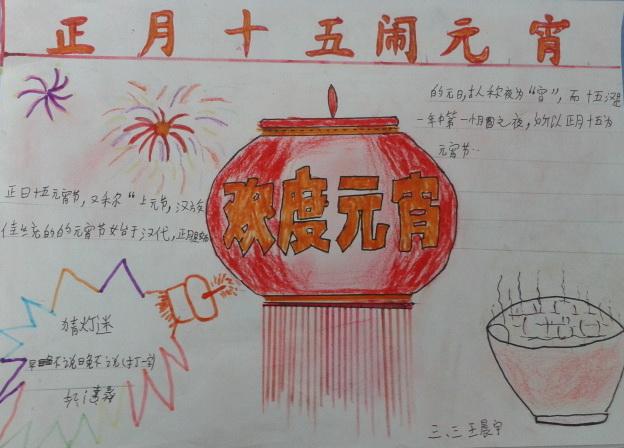 正月十五闹元宵
正日十五元宵节,又称"上元节,汉族
的元宵节始于汉代,正月是
的元日,古人称夜为"宵",而十五
一年中第一个月圆之夜,所以正月十五为
元宵节…
欢度元宵
猜灯迷
不说晚不说(打一字)
三、三 王晨宇